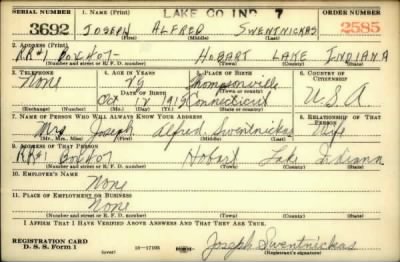 SERIAL NUMBER 1. NAME (Print) LAKE CO IND 7 ORDER NUMBER
3692 JOSEPH ALFRED SWENTNICKAS 2585
(First) (Middle) (Last)
2. ADDRESS (Print)
RR#1 Box 407- HOBART LAKE INDIANA
(Number and street or R. F. D. number) (Town) (County) (State)
3. TELEPHONE 4. AGE IN YEARS 5. PLACE OF BIRTH 6. COUNTRY OF CITIZENSHIP
None Thompsonville
DATE OF BIRTH (Town or county)
Oct Connecticut U.S.A
(Exchange) (Number) (Mo.) (Day) (Yr.) (State or country)
7. NAME OF PERSON WHO WILL ALWAYS KNOW YOUR ADDRESS 8. RELATIONSHIP OF THAT PERSON
Mrs Joseph Alfred Swentnickas Wife
(Mr., Mrs., Miss) (First) (Middle) (Last)
9. ADDRESS OF THAT PERSON
RR#1 Box 407 Hobart Lake Indiana
(Number and street or R. F. D. number) (Town) (County) (State)
10. EMPLOYER'S NAME
None
11. PLACE OF EMPLOYMENT OR BUSINESS
None
(Number and street or R. F. D. number) (Town) (County) (State)
I AFFIRM THAT I HAVE VERIFIED ABOVE ANSWERS AND THAT THEY ARE TRUE.
REGISTRATION CARD
D. S. S. Form 1 16-17105 Joseph Swentnickas
(Registrant's signature)